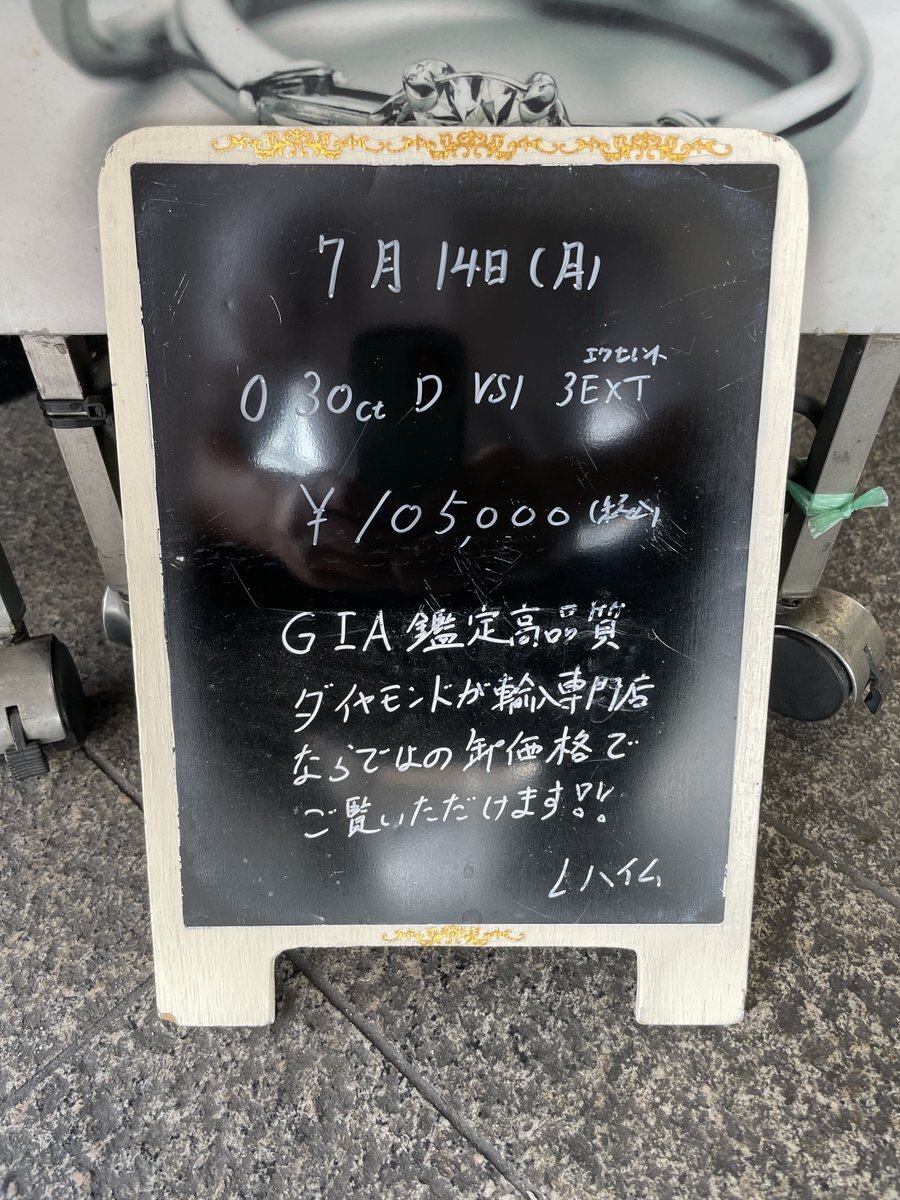 7月14日(月)
エクセレント
0 30ct D VS1 3EXT
¥105,000(税込)
GIA鑑定高品質
ダイヤモンドが輸入専門店
ならではの卸価格で
ご覧いただけます!!
レハイム